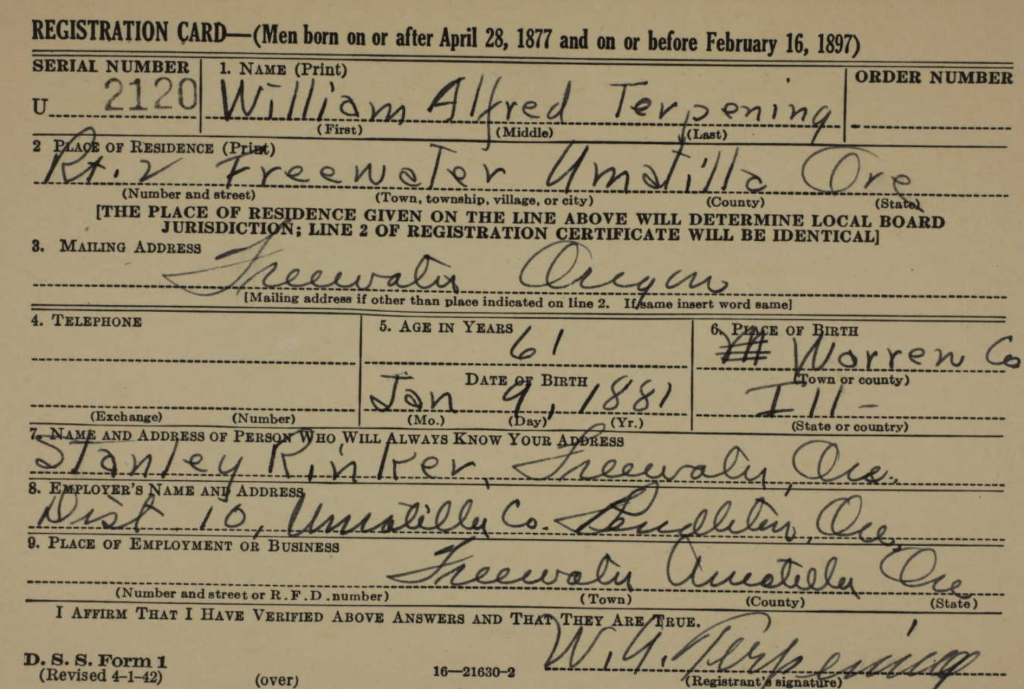 REGISTRATION CARD—(Men born on or after April 28, 1877 and on or before February 16, 1897)
SERIAL NUMBER 1. NAME (Print) ORDER NUMBER
U 2120 William Alfred Terpening
(First) (Middle) (Last)
2 PLACE OF RESIDENCE (Print)
Rt. 2 Freewater Umatilla Ore
(Number and street) (Town, township, village, or city) (County) (State)
[THE PLACE OF RESIDENCE GIVEN ON THE LINE ABOVE WILL DETERMINE LOCAL BOARD
JURISDICTION; LINE 2 OF REGISTRATION CERTIFICATE WILL BE IDENTICAL]
3. MAILING ADDRESS
Freewater Oregon
[Mailing address if other than place indicated on line 2. If same insert word same]
4. TELEPHONE 5. AGE IN YEARS 6. PLACE OF BIRTH
61 Warren Co
DATE OF BIRTH (Town or county)
Jan 9, 1881 Ill-
(Exchange) (Number) (Mo.) (Day) (Yr.) (State or country)
7. NAME AND ADDRESS OF PERSON WHO WILL ALWAYS KNOW YOUR ADDRESS
Stanley Rinker, Freewater, Ore.
8. EMPLOYER'S NAME AND ADDRESS
Dist 10, Umatilla Co. Pendleton, Ore.
9. PLACE OF EMPLOYMENT OR BUSINESS
Freewater Umatilla Ore
(Number and street or R. F. D. number) (Town) (County) (State)
I AFFIRM THAT I HAVE VERIFIED ABOVE ANSWERS AND THAT THEY ARE TRUE.
W. A. Terpening
D. S. S. Form 1
(Revised 4-1-42) (over) 16—21630-2 (Registrant's signature)